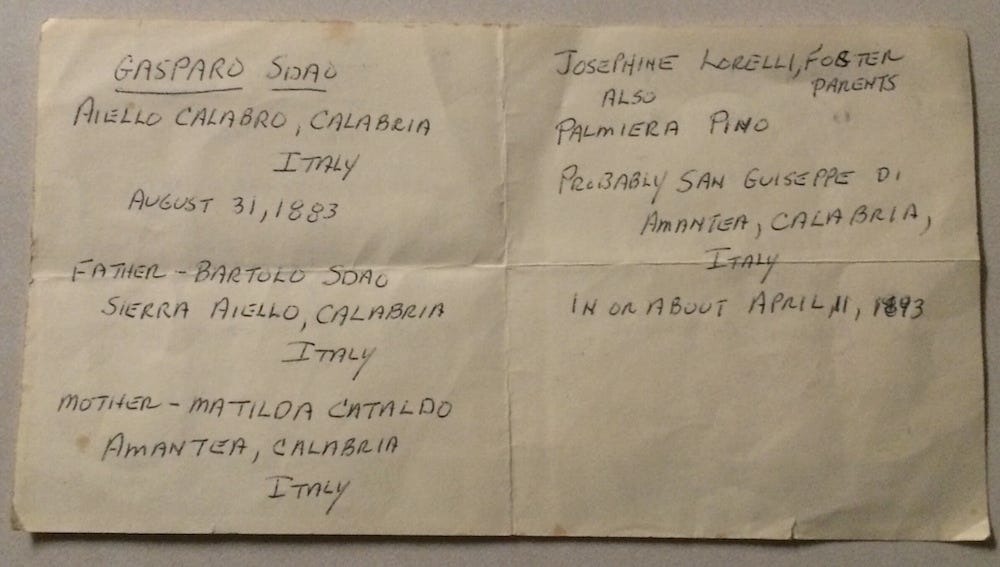 GASPARO SDAO
AIELLO CALABRO, CALABRIA
ITALY
AUGUST 31, 1883
FATHER - BARTOLO SDAO
SIERRA AIELLO, CALABRIA
ITALY
MOTHER - MATILDA CATALDO
AMANTEA, CALABRIA
ITALY
JOSEPHINE LORELLI, FOSTER
PARENTS
ALSO
PALMIERA PINO
PROBABLY SAN GUISEPPE DI
AMANTEA, CALABRIA,
ITALY
IN OR ABOUT APRIL 11, 1893